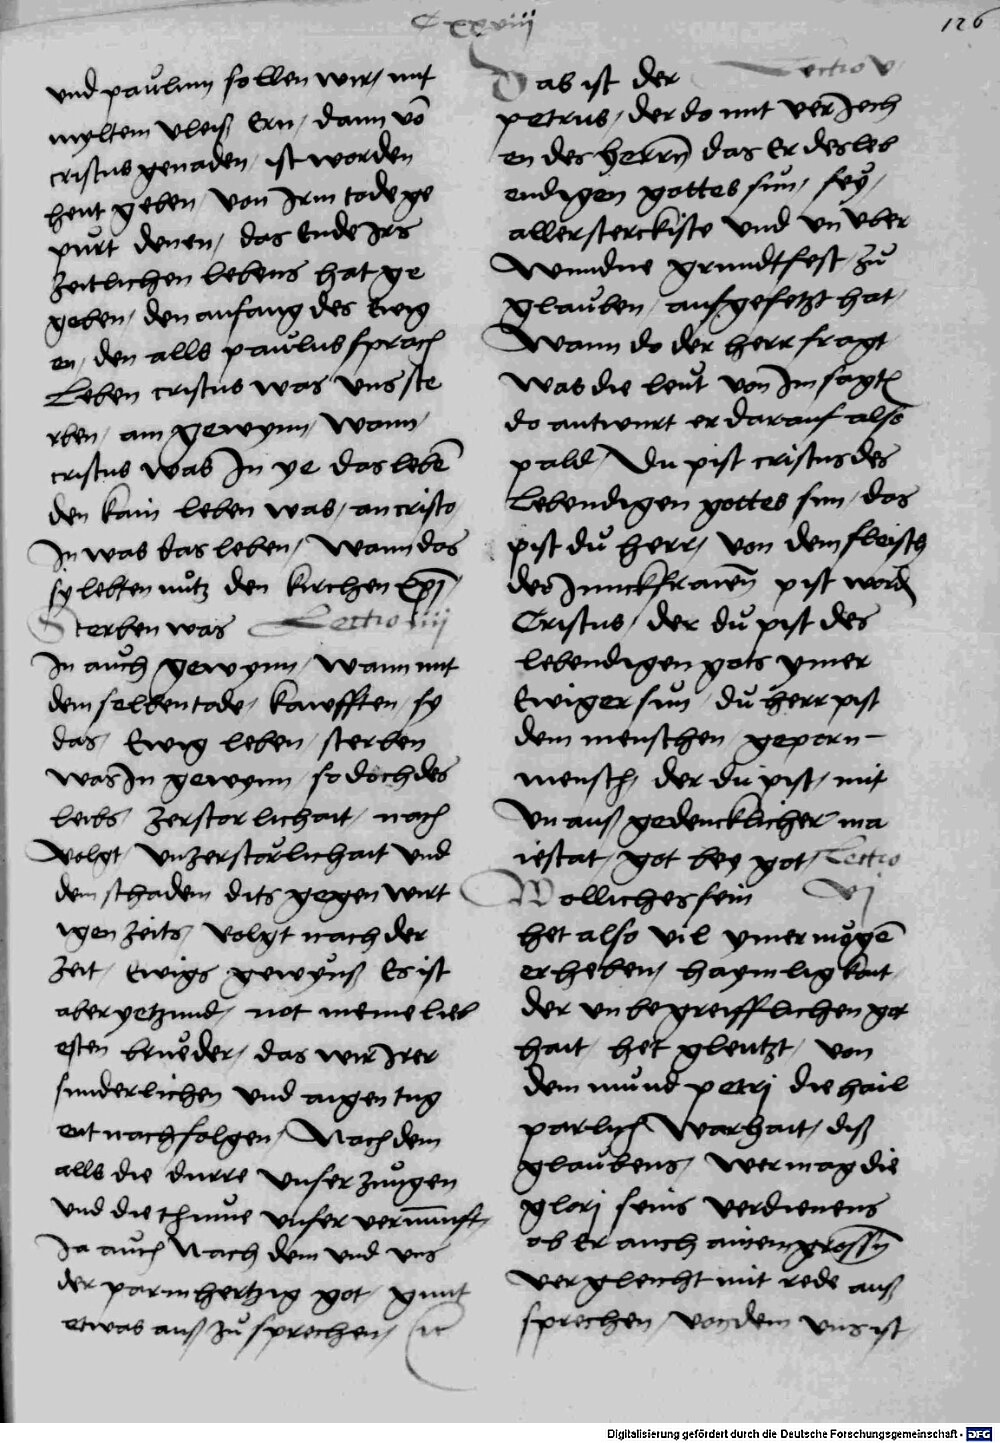 Cxxviij
126
und paulum sollen wir, mit
myltem vleiß Ern, dann võ
cristus genaden, ist worden
heut geben, von Irm tode ge
purt denen, das Ende Irs
zeitlichen lebens hat ge
geben, den anfang des Ewig
en, den alls paulus sprach
Leben cristus was uns ste
rben, am gewynn, Wann,
cristus was In ye das lebẽ
den kain leben was, an cristo,
In was das leben, Wann das
sy lebten nutz den kirchen xpī,
Sterben was Lectio iiij
In auch gewynn, Wann mit
dem selben tode, kawfften, sy
das, Ewig leben, sterben
was In gewynn, so doch des
leibs, zerstorlichait, nach
volgt, unzerstorlichait und
dem schadem dits gegenwirt
igen zeits, volgt nach der
zeit, Ewigs gewynß Es ist
aber yetzund, not meine lieb
esten brueder, das wir Irer
sunderlichen und aigen tug
ent nachfolgen, Nach dem
alls die durre unser zungen
und die thinne unser vernunft,
Ja auch Nach dem und uns
der parmhertzig got, gunt
etwas auß zu sprechen,
Das ist der Lectio v.
petrus, der do mit verJech
en des herrn das Er des leb
endigen gottes sun, sey,
allersterckiste und unuber
Wundne grundtfest zu
glauben, aufgesetzt hat,
Wann do der herr fragt,
was die leut von Im sagtẽ
do antwurt er darauf also
pald, Du pist cristus des
Lebendigen gottes sun, das
pist du herr, von dem fleisch
des Junckfrawen pist word
Cristus, der du pist des
lebendigen gots ymer
Ewiger sun, du herr pist
dem menschen, geporn
mensch, der du pist, mit
un auß gedencklicher ma
iestat, got bey got, Lectio
Wolliches sein vj
het also vil ymer mugẽ
erheben, haymligkait,
der unbegreifflichen got
hait, het glentzt, von
dem mund petrj die hail
parlich Warhait, diß
glaubens, Wer mag die
glorj seins verdienens
ob Er auch ainem grossn
vergleicht mit rede auß
sprechen, von dem uns ist,
Digitalisierung gefördert durch die Deutsche Forschungsgemeinschaft - DFG